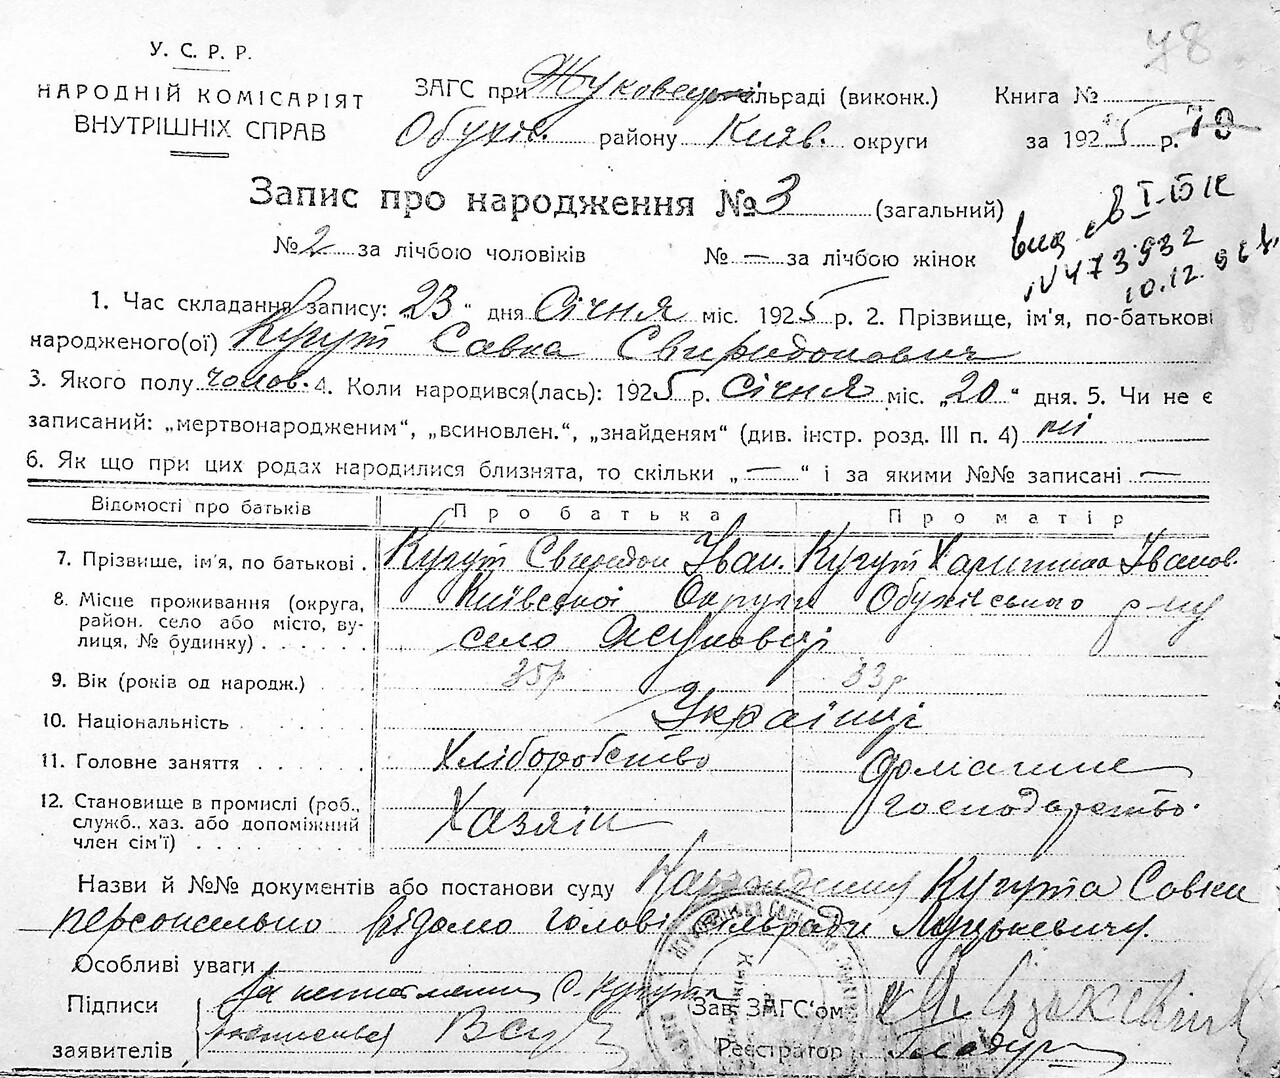 78
У. С. Р. Р.
НАРОДНІЙ КОМІСАРІЯТ
ВНУТРІШНІХ СПРАВ
ЗАГС при Жуковец сільраді (виконк.) Книга №
Обухів. району Київ. округи за 1925 р. 79
Запис про народження № 3 (загальний)
№ 2 за лічбою чоловіків № — за лічбою жінок
вид. І-
№ 473932
10.12.
1. Час складання запису: „23“ дня Січня міс. 1925 р. 2. Прізвище, ім'я, по-батькові
народженого(ої) Кугут Савка Свиридонович
3. Якого полу чолов. 4. Коли народився(лась): 1925 р. Січня міс. „20“ дня. 5. Чи не є
записаний: „мертвонародженим“, „всиновлен.“, „знайденям“ (див. інстр. розд. III п. 4) ні
6. Як що при цих родах народилися близнята, то скільки „—“ і за якими №№ записані —
Відомості про батьків Про батька Про матір
7. Прізвище, ім'я, по батькові . Кугут Свиридон Іван. Кугут Харитина Іванов.
8. Місце проживання (округа, Київської Округи Обухівського р-ну
район. село або місто, ву-
лиця, № будинку) . . . . . . село Жуковці
9. Вік (років од народж.) . . 35р 33р
10. Національність . . . . . Українці
11. Головне заняття . . . . . Хліборобство Домашнє
12. Становище в промислі (роб., господарство.
служб., хаз. або допоміжний Хазяїн
член сім'ї) . . . . . . . .
Назви й №№ документів або постанови суду Кугута Савки
персонально відомо голові сільради Луцькевичу.
Особливі уваги
Підписи За неписьменн С. Кугута Зав. ЗАГС'ом
заявителів Реєстратор